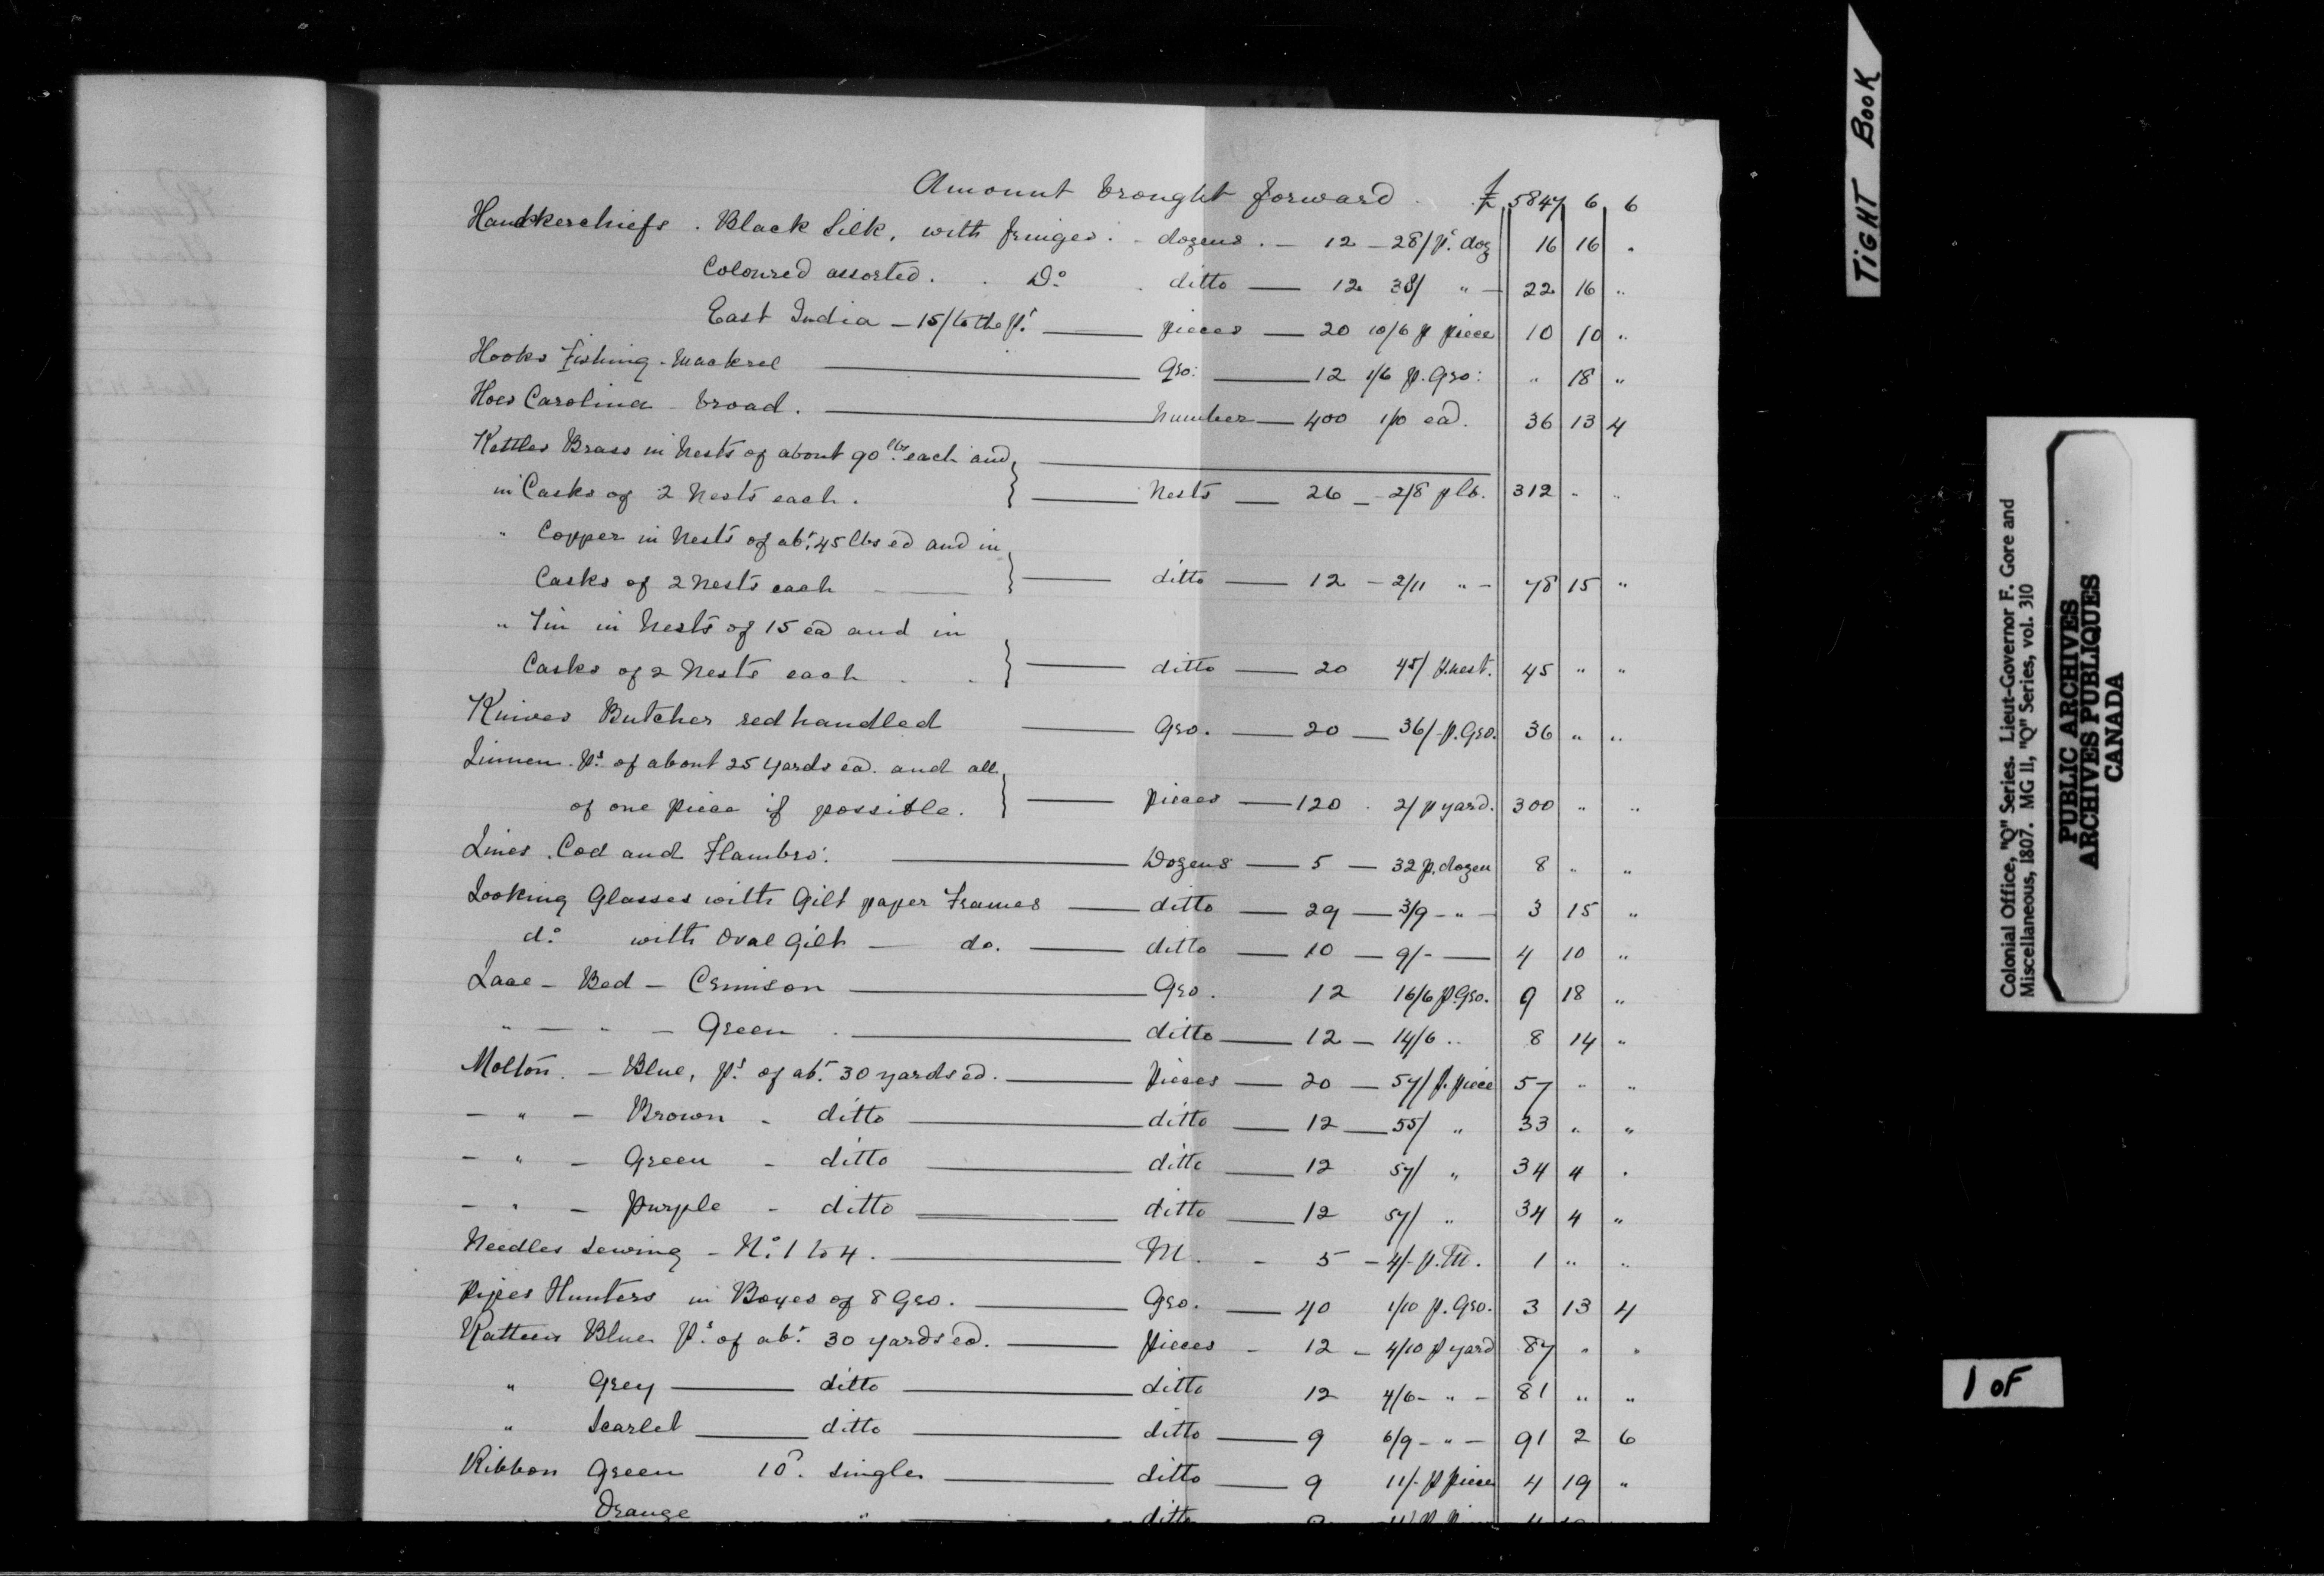 Amount brought forward . £ 5847 6 6
Handkerchiefs . Black Silk, with fringes . - dozens . - 12 - 28/ p.r doz 16 16 "
Coloured assorted . . Do . ditto — 12 38/ " - 22 16 "
East India - 15/ to the p.s — pieces — 20 10/6 p piece 10 10 "
Hooks Fishing - Mackrel — Gro: — 12 1/6 p. Gro: " 18 "
Hoes Carolina - broad . — Number — 400 1/10 ea. 36 13 4
Kettles Brass in Nests of about 90 lbs each and
in Casks of 2 Nests each . — Nests — 26 - 2/8 p lb. 312 " "
" Copper in Nests of abt. 45 lbs ed and in
Casks of 2 Nests each — ditto — 12 - 2/11 " - 78 15 "
" Tin in Nests of 15 ea and in
Casks of 2 Nests each . . — ditto — 20 45/ p. nest. 45 " "
Knives Butcher red handled — Gro. — 20 — 36/- p. Gro. 36 " "
Linnen . Ps. of about 25 yards ea. and all
of one piece if possible . — pieces — 120 . 2/ p yard. 300 " "
Lines . Cod and Flambro: — Dozens — 5 — 32 p. dozen 8 " "
Looking Glasses with Gilt paper Frames — ditto — 29 — 3/9 - " - 3 15 "
do with Oval Gilt — do. — ditto — 10 — 9/- — 4 10 "
Lace - Bed - Crimson — Gro . 12 16/6 p. Gro. 9 18 "
" — " — Green . — ditto — 12 — 14/6 .. 8 14 "
Molton . - Blue, ps. of abt. 30 yards ed. — pieces — 20 — 57/ p. piece 57 " "
- " - Brown - ditto — ditto — 12 — 55/ " 33 " "
- " - Green - ditto — ditto — 12 57/ " 34 4 "
- " - Purple - ditto — ditto — 12 57/ " 34 4 "
Needles Sewing - No. 1 to 4 . — M. - 5 - 4/- p. M. 1 " "
Pipes Hunters in Boxes of 8 Gro. — Gro. — 40 1/10 p. Gro. 3 13 4
Ratteen Blue Ps. of abt. 30 yards ed. — pieces - 12 - 4/10 p yard 87 " "
" Grey — ditto — ditto 12 4/6 - " - 81 " "
" Scarlet — ditto — ditto — 9 6/9 - " - 91 2 6
Ribbon Green 10d. Single — ditto — 9 11/- p piece 4 19 "
Orange " — ditto
TIGHT BOOK
Colonial Office, "Q" Series. Lieut-Governor F. Gore and
Miscellaneous, 1807. MG 11, "Q" Series, vol. 310
PUBLIC ARCHIVES
ARCHIVES PUBLIQUES
CANADA
1 OF